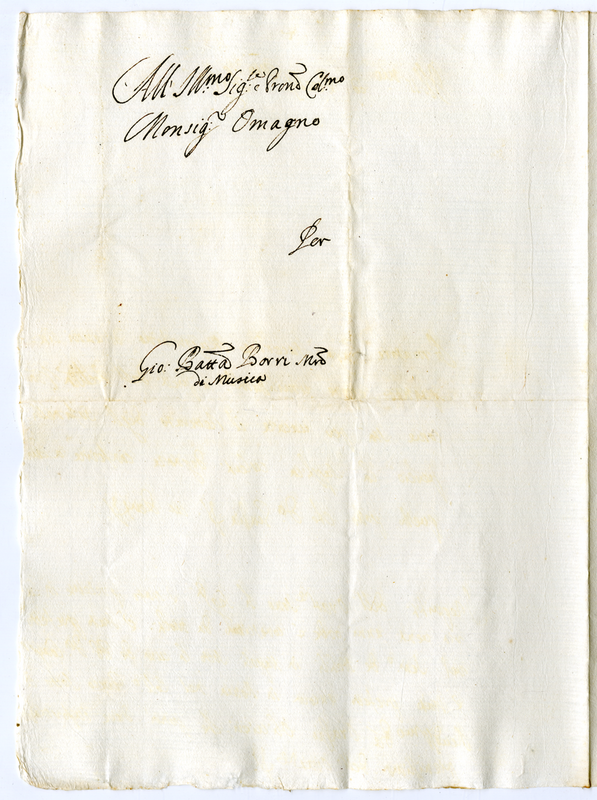 All' Ill.mo Sig.re e Prone Col.mo
Monsig.r Omagno
Per
Gio: Batta Borri Mro
di Musica